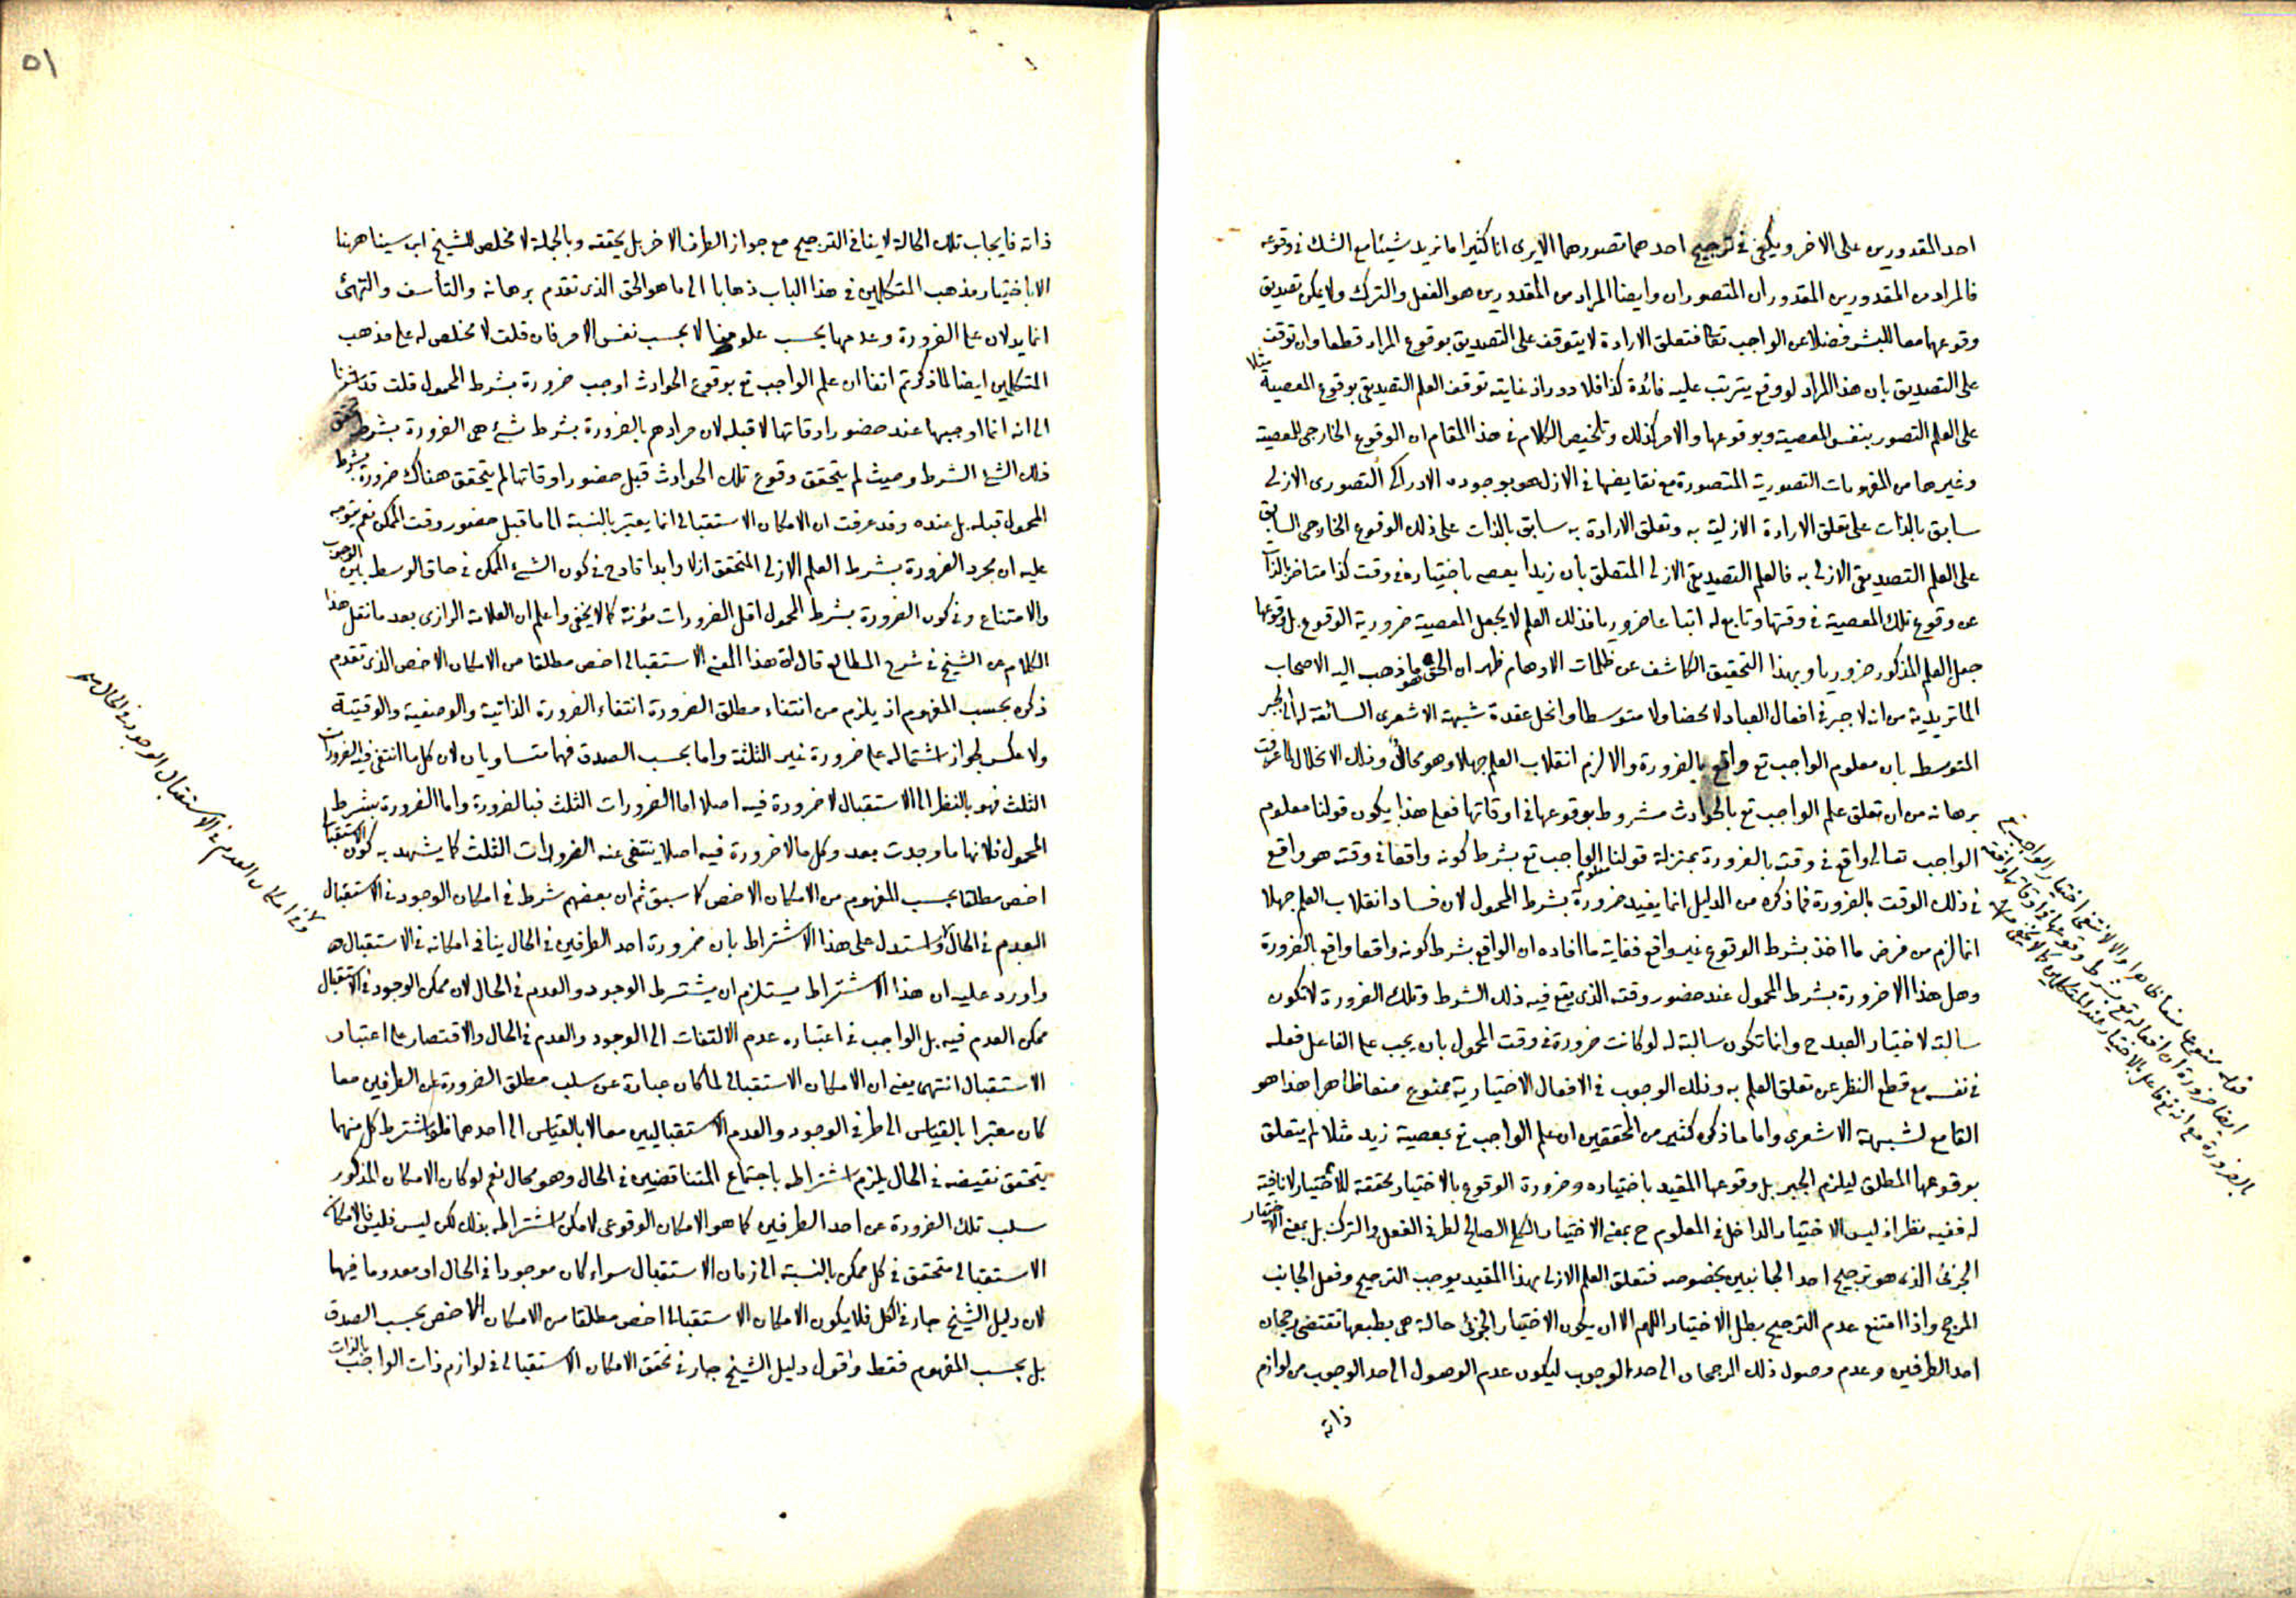 احد المقدورين على الاخر ويكفى فى ترجيح احدهما تصورهما الايرى انا كثيرا ما نريد شيئا مع الشك فى وقوعه
فالمراد من المقدورين المقدوران المتصوران وايضا المراد من المقدورين هو الفعل والترك ولا يمكن تصديق
وقوعهما معا للبشر فضلا عن الواجب تعا فتعلق الارادة لا يتوقف على التصديق بوقوع المراد قطعا وان توقف
على التصديق بان هذا المراد لو وقع يترتب عليه فائدة كذا فلا دور اذ غايته توقف العلم التصديقى بوقوع المعصية مثلا
على العلم التصور بنفس المعصية وبوقوعها والامر كذلك وتلخيص الكلام فى هذا المقام ان الوقوع الخارجى للمعصية
وغيرها من المفهومات التصورية المتصورة مع نقايضها فى الازل هو بوجوده الادراكى التصورى الازلى
سابق بالذات على تعلق الارادة الازلية به وتعلق الارادة به سابق بالذات على ذلك الوقوع الخارجى السابق
على العلم التصديقى الازلى به فالعلم التصديقى الازلى المتعلق بان زيدا يعصى باختياره فى وقت كذا متاخر بالذات
عن وقوع تلك المعصية فى وقتها وتابع له اتباعا ضروريا فذلك العلم لا يجعل المعصية ضرورية الوقوع بل وقوعها
جعل العلم المذكور ضروريا وبهذا التحقيق الكاشف عن ظلمات الاوهام ظهر ان الحق هو ما ذهب اليه الاصحاب
الماتريدية من انه لا جبر فى افعال العباد لا محضا ولا متوسطا وانحل عقدة شبهة الاشعرى السائقة له الى الجبر
المتوسط بان معلوم الواجب تع واقع بالضرورة والا لزم انقلاب العلم جهلا وهو محال وذلك الانحلال لما عرفت
برهانه من ان تعلق علم الواجب تع بالحوادث مشروط بوقوعها فى اوقاتها فعلى هذا يكون قولنا معلوم
الواجب تعالى واقع فى وقته بالضرورة بمنزلة قولنا معلوم الواجب تع بشرط كونه واقعا فى وقته هو واقع
فى ذلك الوقت بالضرورة فما ذكره من الدليل انما يفيد ضرورة بشرط المحمول لان فساد انقلاب العلم جهلا
انما لزم من فرض ما اخذ بشرط الوقوع غير واقع فغاية ما افاده ان الواقع بشرط كونه واقعا واقع بالضرورة
وهل هذا الا ضرورة بشرط المحمول عند حضور وقته الذى يقع فيه ذلك الشرط وتلك الضرورة لا تكون
سالبة لاختيار العبد ح وانما تكون سالبة له لو كانت ضرورة فى وقت المحمول بان يجب على الفاعل فعله
فى نفسه مع قطع النظر عن تعلق العلم به وذلك الوجوب فى الافعال الاختيارية ممنوع منعا ظاهرا هذا هو
القامع لشبهة الاشعرى واما ما ذكره كثير من المحققين ان علم الواجب تع بمعصية زيد مثلا لم يتعلق
بوقوعها المطلق ليلزم الجبر بل وقوعها المقيد باختياره وضرورة الوقوع بالاختيار محققة للاختيار لا نافية
له ففيه نظر اذ ليس الاختيار الداخل فى المعلوم ح بمعنى الاختيار الكلى الصالح لطرفى الفعل والترك بل بمعنى الاختيار
الجزئى الذى هو ترجيح احد الجانبين بخصوصه فتعلق العلم الازلى بهذا المقيد يوجب الترجيح وفعل الجانب
المرجح واذا امتنع عدم الترجيح بطل الاختيار اللهم الا ان يكون الاختيار الجزئى حالة هى بطبعها تقتضى رجحان
احد الطرفين وعدم وصول ذلك الرجحان الى حد الوجوب ليكون عدم الوصول الى حد الوجوب من لوازم
ذاته
فعله ممنوع منعا ظاهرا والا لانتفى اختيار الواجب تع
ايضا ضرورة ان افعاله تع بشرط وقوعها فى اوقاتها واقعة
بالضرورة مع انه تع فاعل بالاختيار عند المتكلمين كما لا يخفى
٥١
ذاته فايجاب تلك الحالة لا ينافى الترجيح مع جواز الطرف الاخر بل يحققه وبالجملة لا مخلص للشيخ ابن سينا ههنا
الا باختيار مذهب المتكلمين فى هذا الباب ذهابا الى ما هو الحق الذى تقدم برهانه والتأسف والتهنئ
انما يدلان على الضرورة وعدمها بحسب علومنا لا بحسب نفس الامر فان قلت لا مخلص له على مذهب
المتكلمين ايضا لما ذكرتم انفا ان علم الواجب تع بوقوع الحوادث اوجب ضرورة بشرط المحمول قلت قد اشرنا
الى انه انما اوجبها عند حضور اوقاتها لا قبله لان مرادهم بالضرورة بشرط شئ هى الضرورة بشرط تحقق
ذلك الشئ الشرط وحيث لم يتحقق وقوع تلك الحوادث قبل حضور اوقاتها لم يتحقق هناك ضرورة بشرط
المحمول قبله بل عنده وقد عرفت ان الامكان الاستقبالى انما يعتبر بالنسبة الى ما قبل حضور وقت الممكن نعم يتوجه
عليه ان مجرد الضرورة بشرط العلم الازلى المتحقق ازلا وابدا قادح فى كون الشئ الممكن فى حاق الوسط بين الوجوب
والامتناع وفى كون الضرورة بشرط المحمول اقل الضرورات مؤنة كما لا يخفى واعلم ان العلامة الرازى بعد ما نقل هذا
الكلام عن الشيخ فى شرح المطالع قال ان هذا المعنى الاستقبالى اخص مطلقا من الامكان الاخص الذى تقدم
ذكره بحسب المفهوم اذ يلزم من انتفاء مطلق الضرورة انتفاء الضرورة الذاتية والوصفية والوقتية
ولا عكس لجواز اشتماله على ضرورة غير الثلثة واما بحسب الصدق فهما متساويان لان كل ما انتفى فيه الضرورات
الثلث فهو بالنظر الى الاستقبال لا ضرورة فيه اصلا اما الضرورات الثلث فبالضرورة واما الضرورة بشرط
المحمول فلانها ما وجدت بعد وكل ما لا ضرورة فيه اصلا ينتفى عنه الضرورات الثلث كما يشهد به كون الاستقبالى
اخص مطلقا بحسب المفهوم من الامكان الاخص كما سبق ثم ان بعضهم شرط فى امكان الوجود فى الاستقبال
العدم فى الحال واستدل على هذا الاشتراط بان ضرورة احد الطرفين فى الحال ينافى امكانه فى الاستقبال
واورد عليه ان هذا الاشتراط يستلزم ان يشترط الوجود والعدم فى الحال لان ممكن الوجود فى الاستقبال
ممكن العدم فيه بل الواجب فى اعتباره عدم الالتفات الى الوجود والعدم فى الحال والاقتصار على اعتبار
الاستقبال انتهى يعنى ان الامكان الاستقبالى لما كان عبارة عن سلب مطلق الضرورة عن الطرفين معا
كان معتبرا بالقياس الى طرفى الوجود والعدم الاستقباليين معا لا بالقياس الى احدهما فلو اشترط كل منهما
بتحقق نقيضه فى الحال يلزم اشتراطه باجتماع المتناقضين فى الحال وهو محال نعم لو كان الامكان المذكور
سلب تلك الضرورة عن احد الطرفين كما هو الامكان الوقوعى لامكن اشتراطه بذلك لكن ليس فليس فالامكان
الاستقبالى متحقق فى كل ممكن بالنسبة الى زمان الاستقبال سواء كان موجودا فى الحال او معدوما فيها
لان دليل الشيخ جار فى الكل فلا يكون الامكان الاستقبالى اخص مطلقا من الامكان الاخص بحسب الصدق
بل بحسب المفهوم فقط واقول دليل الشيخ جار فى تحقق الامكان الاستقبالى فى لوازم ذات الواجب بالذات
وفى امكان العدم فى الاستقبال الوجود فى الحال